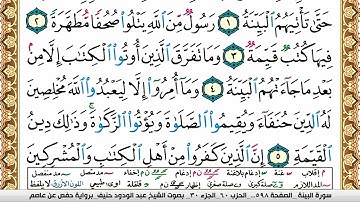 حَتَّىٰ تَأْتِيَهُمُ ٱلْبَيِّنَةُ ١ رَسُولٌ مِّنَ ٱللَّهِ يَتْلُوا۟ صُحُفًا مُّطَهَّرَةً ٢
فِيهَا كُتُبٌ قَيِّمَةٌ ٣ وَمَا تَفَرَّقَ ٱلَّذِينَ أُوتُوا۟ ٱلْكِتَٰبَ إِلَّا مِنۢ
بَعْدِ مَا جَآءَتْهُمُ ٱلْبَيِّنَةُ ٤ وَمَآ أُمِرُوٓا۟ إِلَّا لِيَعْبُدُوا۟ ٱللَّهَ مُخْلِصِينَ
لَهُ ٱلدِّينَ حُنَفَآءَ وَيُقِيمُوا۟ ٱلصَّلَوٰةَ وَيُؤْتُوا۟ ٱلزَّكَوٰةَ ۚ وَذَٰلِكَ دِينُ
ٱلْقَيِّمَةِ ٥ إِنَّ ٱلَّذِينَ كَفَرُوا۟ مِنْ أَهْلِ ٱلْكِتَٰبِ وَٱلْمُشْرِكِينَ
سورة البينة . الصفحة ٥٩٨ . الحزب ٦٠ . الجزء ٣٠ . بصوت الشيخ عبد الودود حنيف . برواية حفص عن عاصم